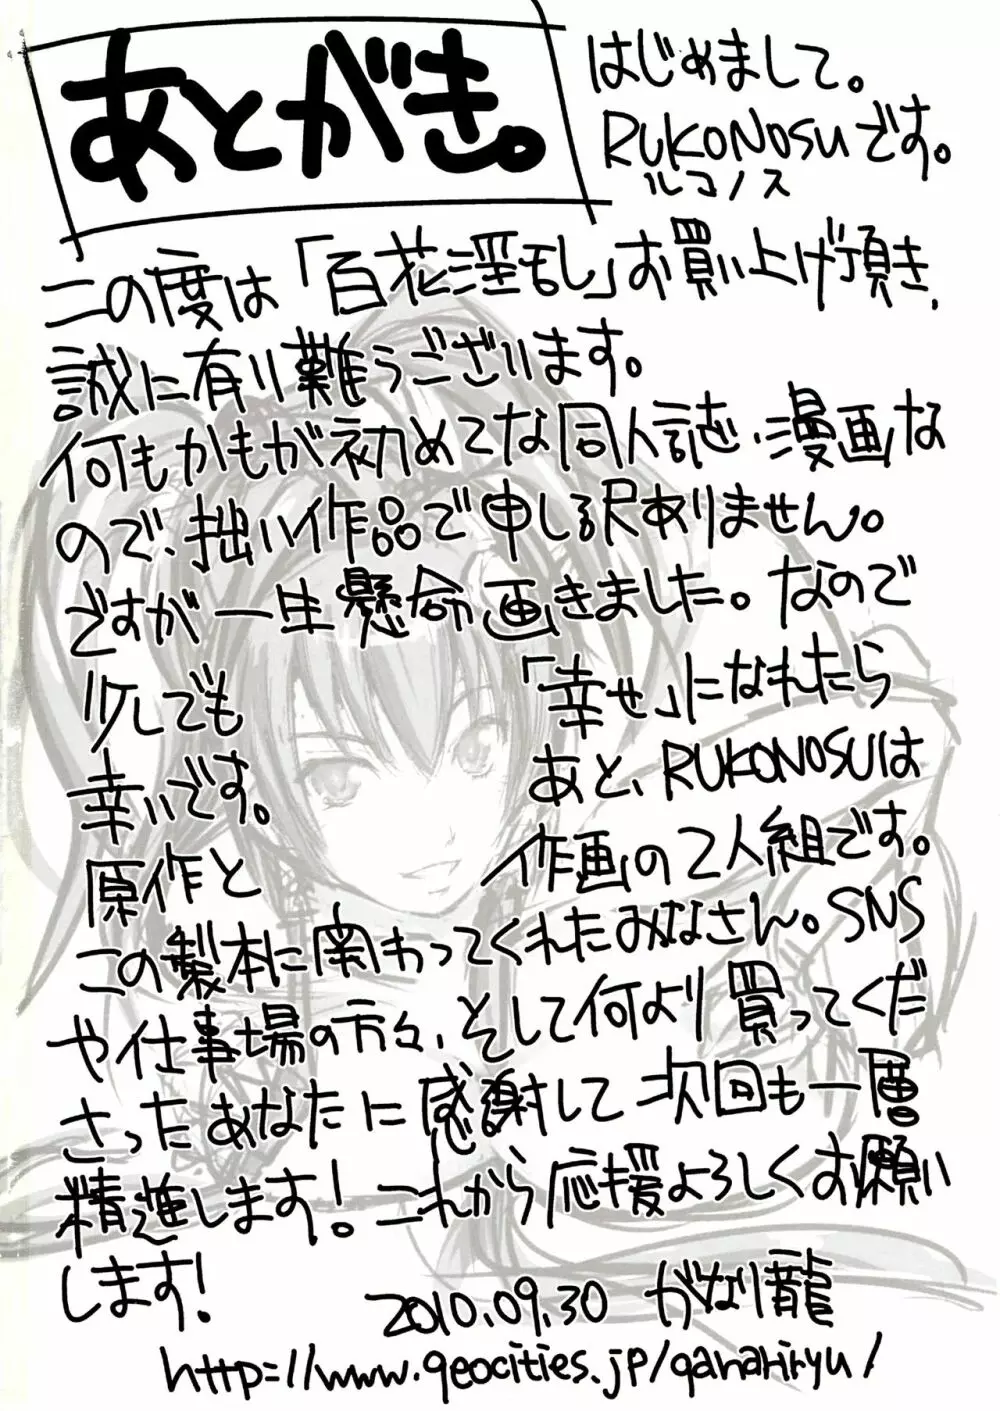 あとがき。
はじめまして。
RUKONOSUです。
ルコノス
この度は「百花淫乱」お買い上げ頂き、
誠に有り難うございます。
何もかもが初めてな同人誌、漫画な
ので、拙い作品で申し訳ありません。
ですが一生懸命画きました。なので
少しでも「幸せ」になれたら
幸いです。あと、RUKONOSUは
原作と作画の2人組です。
この製本に関わってくれたみなさん。SNS
や仕事場の方々、そして何より買ってくだ
さったあなたに感謝して次回も一層
精進します!これから応援よろしくお願い
します!
2010.09.30 がなり龍
http://www.geocities.jp/ganariryu/